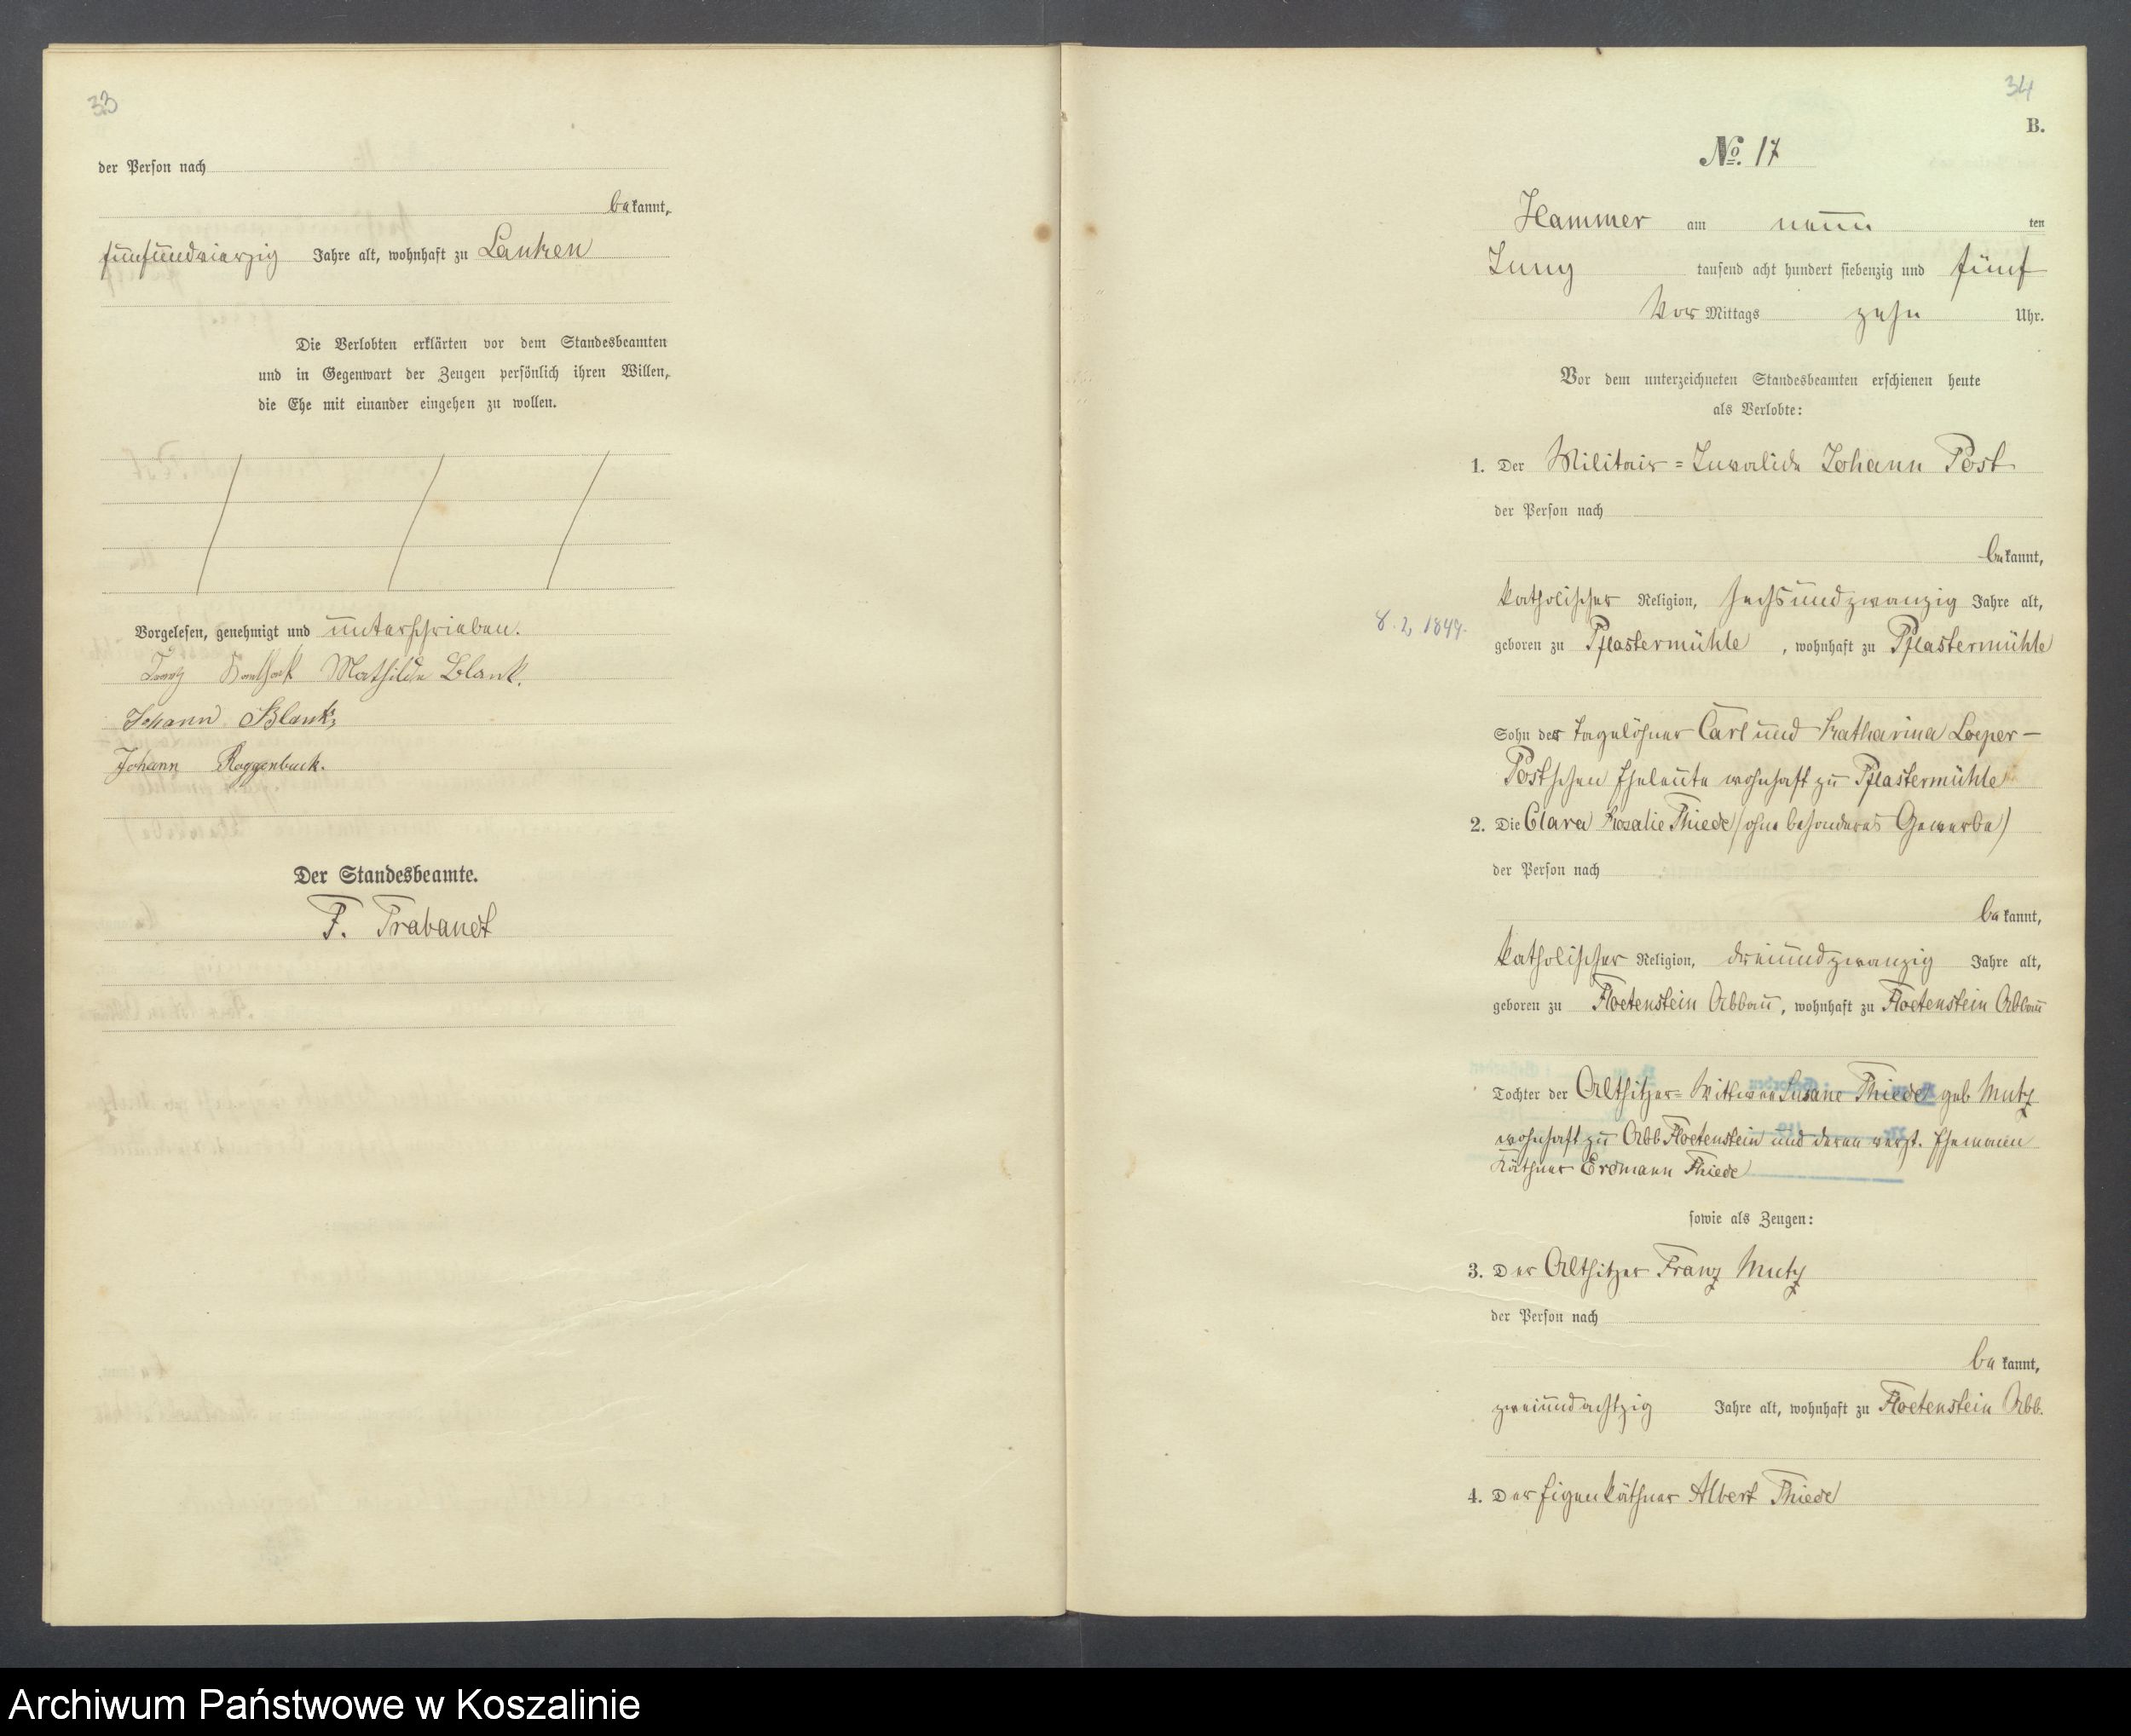 33
der Person nach
bekannt,
fünfundvierzig Jahre alt, wohnhaft zu Lanken
Die Verlobten erklärten vor dem Standesbeamten
und in Gegenwart der Zeugen persönlich ihren Willen,
die Ehe mit einander eingehen zu wollen.
Vorgelesen, genehmigt und unterschrieben.
Mathilde Blank.
Johann Blank
Johann Roggenbuck.
Der Standesbeamte.
F. Trabandt
34
B.
No. 17
Hammer am neun ten
Juny tausend acht hundert siebenzig und fünf
Vor Mittags zehn Uhr.
Vor dem unterzeichneten Standesbeamten erschienen heute
als Verlobte:
1. Der Militair=Invalide Johann Post
der Person nach
bekannt,
katholischer Religion, sechsundzwanzig Jahre alt,
8. 2, 1849.
geboren zu Pflastermühle, wohnhaft zu Pflastermühle
Sohn der Tagelöhner Carl und Katharina Loeper-
Postschen Eheleute wohnhaft zu Pflastermühle
2. Die Clara Rosalie Thiede (ohne besonderes Gewerbe)
der Person nach
bekannt,
katholischer Religion, dreiundzwanzig Jahre alt,
geboren zu Floetenstein Abbau, wohnhaft zu Floetenstein Abbau
Tochter der Altsitzer=Wittwe Susane Thiede geb Mutz
wohnhaft zu Abb Floetenstein und deren verst. Ehemann
Käthner Erdmann Thiede
sowie als Zeugen:
3. Der Altsitzer Franz Mutz
der Person nach
bekannt,
zweiundachtzig Jahre alt, wohnhaft zu Floetenstein Abb.
4. Der Eigenkäthner Albert Thiede
Archiwum Państwowe w Koszalinie